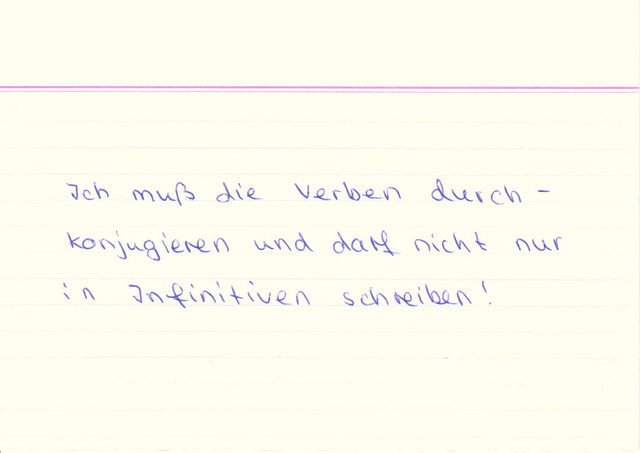 Ich muß die Verben durch-
konjugieren und darf nicht nur
in Infinitiven schreiben!